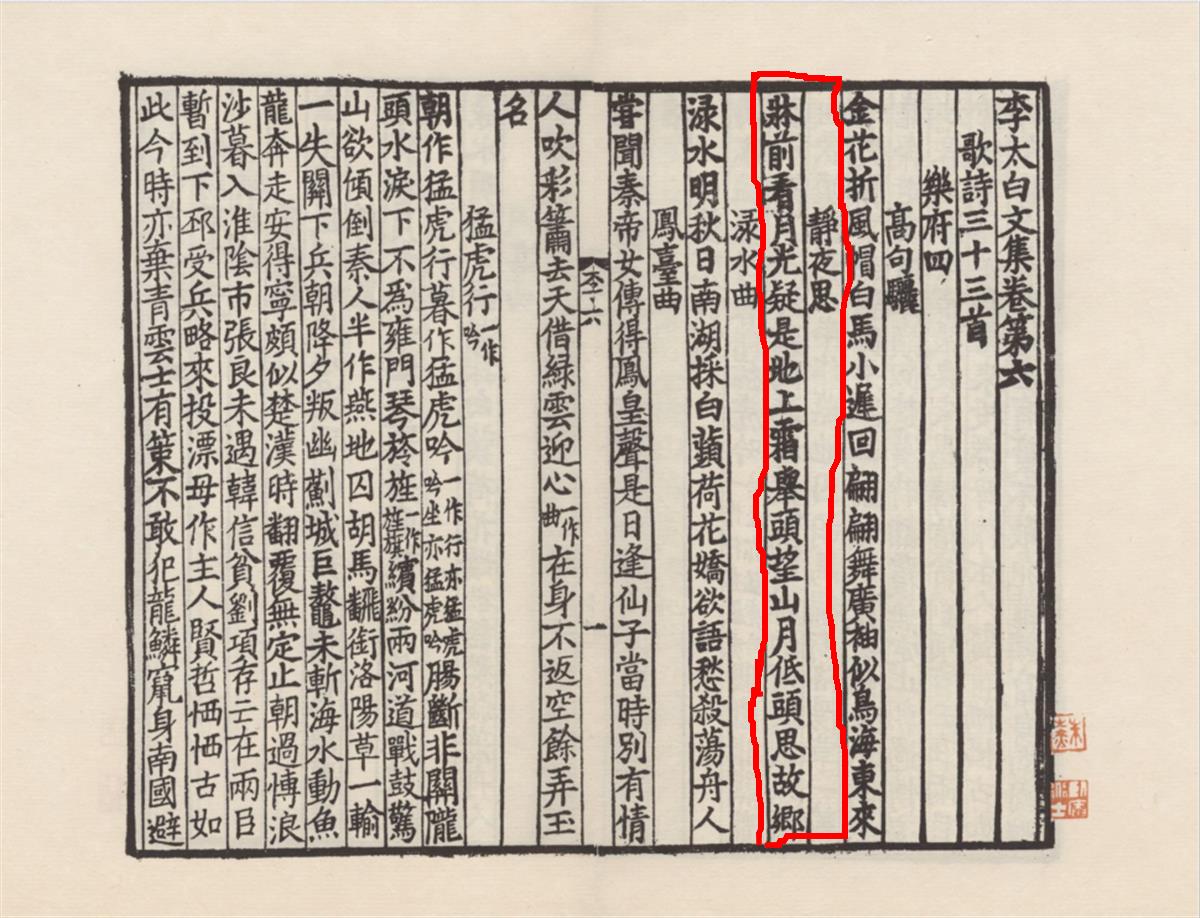 李太白文集卷第六
歌詩三十三首
樂府四
高句驪
金花折風帽白馬小遲回翩翩舞廣袖似鳥海東來
靜夜思
牀前看月光疑是地上霜舉頭望山月低頭思故鄉
淥水曲
淥水明秋日南湖採白蘋荷花嬌欲語愁殺蕩舟人
鳳臺曲
嘗聞秦帝女傳得鳳皇聲是日逢仙子當時別有情
一
人吹彩簫去天借綠雲迎心一作曲在身不返空餘弄玉
名
猛虎行一作吟
朝作猛虎行暮作猛虎吟一作行亦猛虎吟坐亦猛虎吟腸斷非關隴
頭水淚下不爲雍門琴旍旌一作旌旗繽紛兩河道戰鼓驚
山欲傾倒秦人半作燕地囚胡馬飜銜洛陽草一輸
一失關下兵朝降夕叛幽薊城巨鼇未斬海水動魚
龍奔走安得寧頗似楚漢時翻覆無定止朝過愽浪
沙暮入淮陰市張良未遇韓信貧劉項存亡在兩臣
暫到下邳受兵略來投漂母作主人賢哲恓恓古如
此今時亦棄青雲士有策不敢犯龍鱗竄身南國避